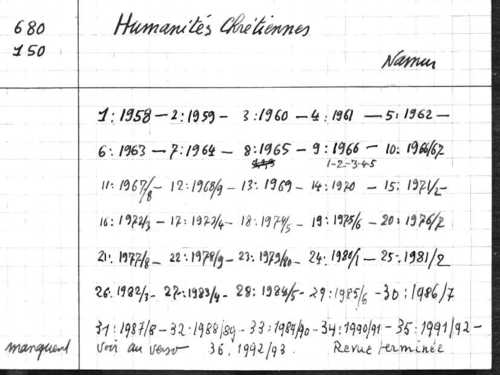 680 Humanités Chrétiennes
150
Namur
1: 1958 — 2: 1959 — 3: 1960 — 4: 1961 — 5: 1962 —
6: 1963 — 7: 1964 — 8: 1965 — 9: 1966 — 10: 1966/67
1-2-3-4-5
11: 1967/8 — 12: 1968/9 — 13: 1969 — 14: 1970 — 15: 1971/2 —
16: 1972/3 — 17: 1973/4 — 18: 1974/5 — 19: 1975/6 — 20: 1976/7
21: 1977/8 — 22: 1978/9 — 23: 1979/80 — 24: 1980/1 — 25: 1981/2
26: 1982/3 — 27: 1983/4 — 28: 1984/5 — 29: 1985/6 — 30: 1986/7
31: 1987/8 — 32: 1988/89 — 33: 1989/90 — 34: 1990/91 — 35: 1991/92 —
manquent voir au verso 36. 1992/93. Revue terminée